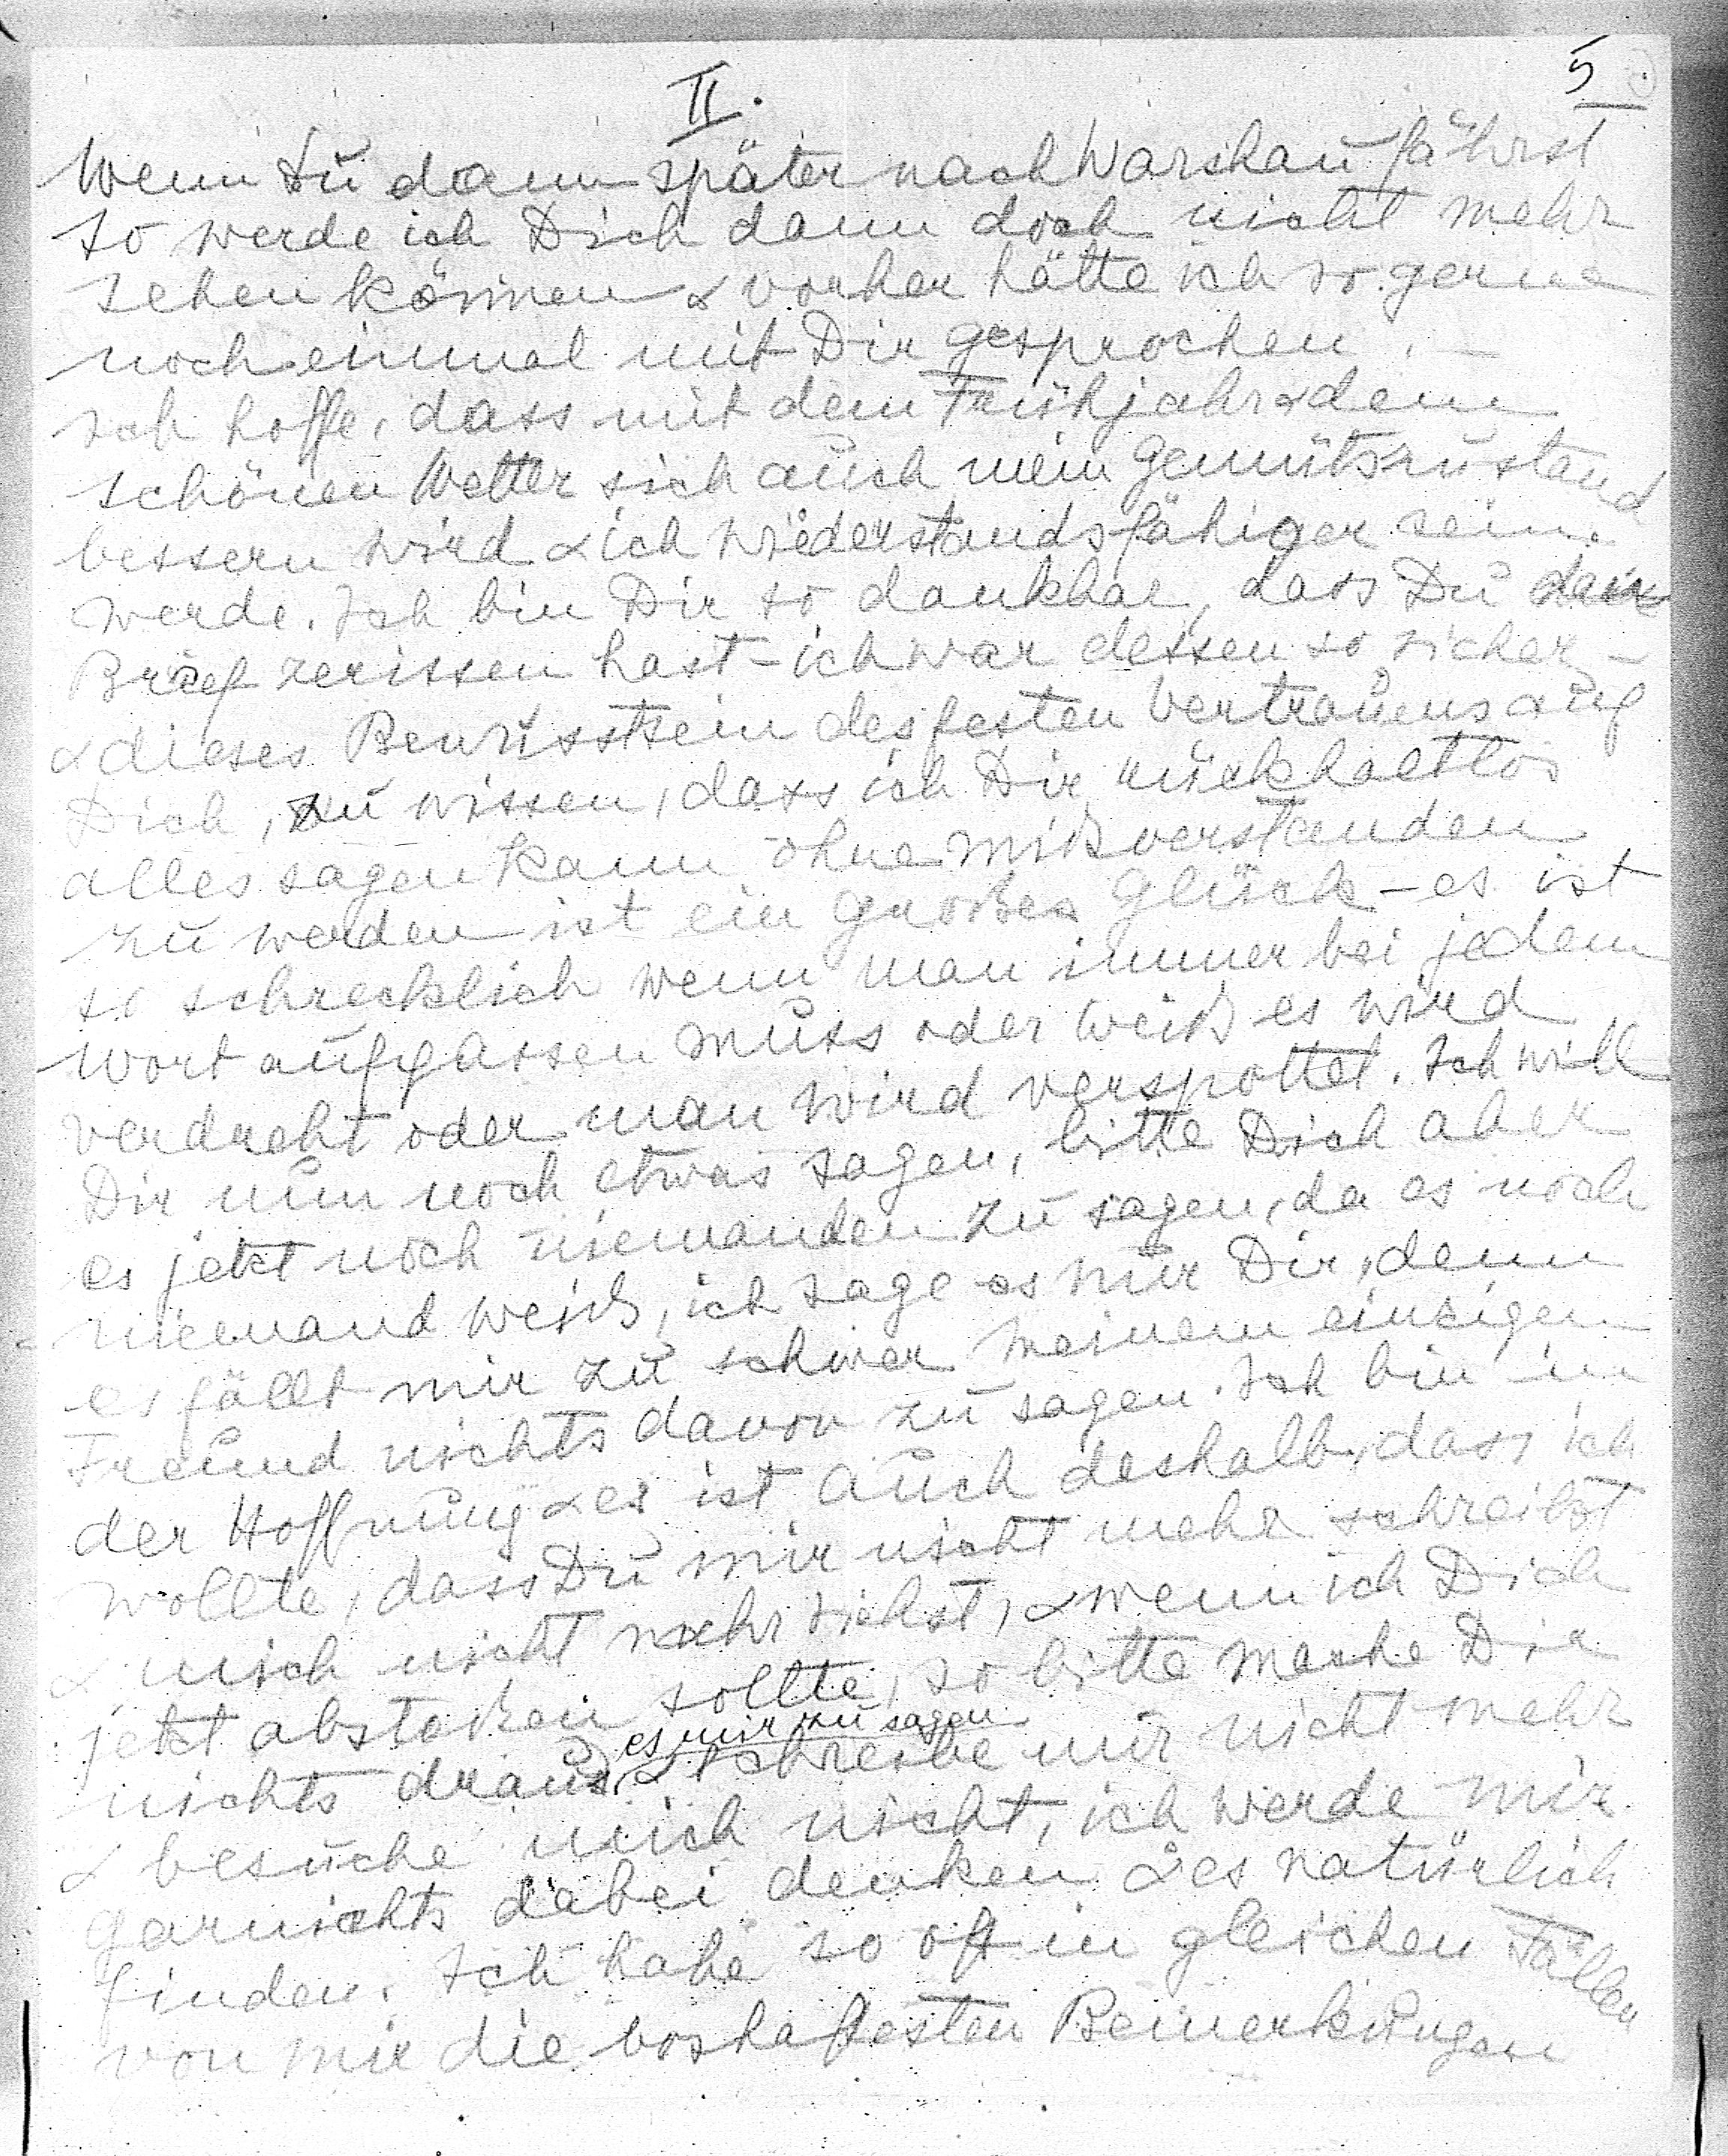 II.
5
Wenn Du dann später nach Warschau fährst
so werde ich Dich dann doch nicht mehr
sehen können & vorher hätte ich so gerne
noch einmal mit Dir gesprochen. –
Ich hoffe, dass mit dem Frühjahr & dem
schönen Wetter sich auch mein Gemütszustand
bessern wird & ich wiederstandsfähiger sein
werde. Ich bin Dir so dankbar, dass Du den
Brief zerissen hast – ich war dessen so sicher –
& dieses Bewüsstsein des festen Vertrauens auf
Dich, zu wissen, dass ich Dir rückhaltlos
alles sagen kann ohne mißverstanden
zu werden ist ein großes Glück – es ist
so schrecklich wenn man immer bei jedem
Wort aufpassen muss oder weiß es wird
verdreht oder man wird verspottet. Ich will
Dir nun noch etwas sagen, bitte Dich aber
es jetzt noch niemanden zu sagen, da es noch
niemand weiß, ich sage es nur Dir, denn
es fällt mir zu schwer meinem einzigen
Freund nichts davon zu sagen. Ich bin in
der Hoffnung & es ist auch deshalb, dass ich
wollte, dass Du mir nicht mehr schreibst
& mich nicht mehr siehst, & wenn ich Dich
jetzt abstoßen sollte, so bitte mache Dir
nichts draus, es mir zu sagen & schreibe mir nicht mehr
& besuche mich nicht, ich werde mir
garnichts dabei denken & es natürlich
finden. Ich habe so oft in gleichen Fällen
von mir die boshaftesten Bemerkungen